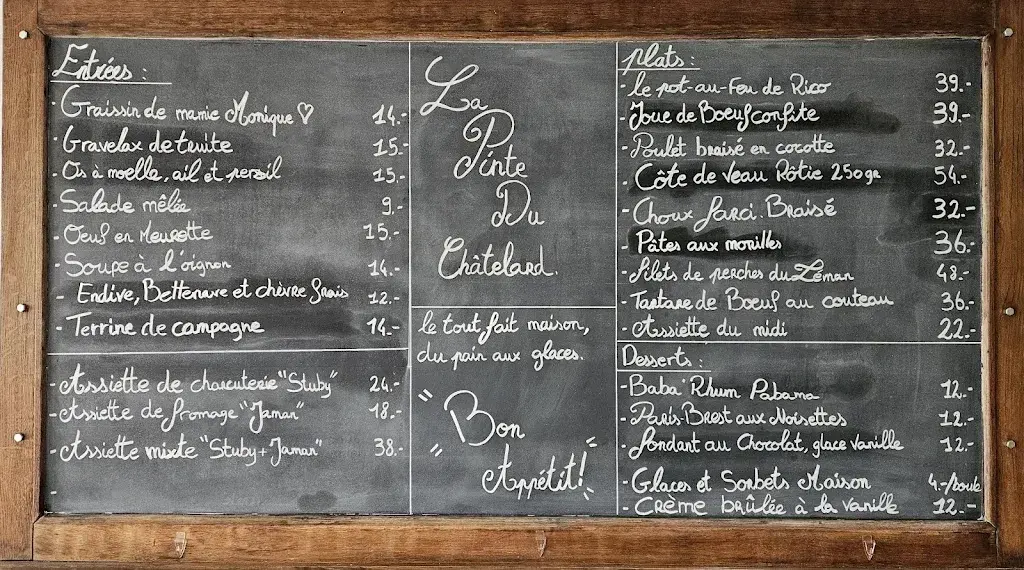 Entrées :
- Graissin de mamie Monique ♡ 14.-
- Gravelax de truite 15.-
- Os à moelle, ail et persil 15.-
- Salade mêlée 9.-
- Oeuf en Meurotte 15.-
- Soupe à l'oignon 14.-
- Endive, Betterave et chèvre frais 12.-
- Terrine de campagne 14.-
- Assiette de charcuterie "Stuby" 24.-
- Assiette de fromage "Jaman" 18.-
- Assiette mixte "Stuby + Jaman" 38.-
-
La
Pinte
Du
Châtelard.
le tout fait maison,
du pain aux glaces.
"Bon
Appétit!"
plats :
- le pot-au-Feu de Rico 39.-
- Joue de Boeuf confite 39.-
- Poulet braisé en cocotte 32.-
- Côte de veau Rôtie 250gr 54.-
- Choux farci. Braisé 32.-
- Pâtes aux morilles 36.-
- Filets de perches du Léman 48.-
- Tartare de Boeuf au couteau 36.-
- Assiette du midi 22.-
Desserts :
- Baba Rhum Pabana 12.-
- Paris-Brest aux Noisettes 12.-
- fondant au Chocolat, glace vanille 12.-
- Glaces et Sorbets Maison 4.-/boule
- Crème brûlée à la vanille 12.-